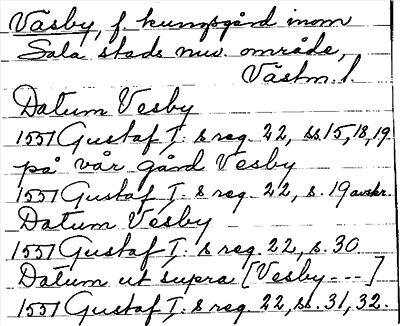 Väsby, f. kungsgård inom
Sala stads nuv. område,
Västm. l.
Datum Vesby
1551 Gustaf I:s reg. 22, ss. 15, 18, 19.
på vår gård Vesby
1551 Gustaf I:s reg. 22, s. 19 avskr.
Datum Vesby
1551 Gustaf I:s reg. 22, s. 30.
Datum ut supra [Vesby ---]
1551 Gustaf I:s reg. 22, ss. 31, 32.